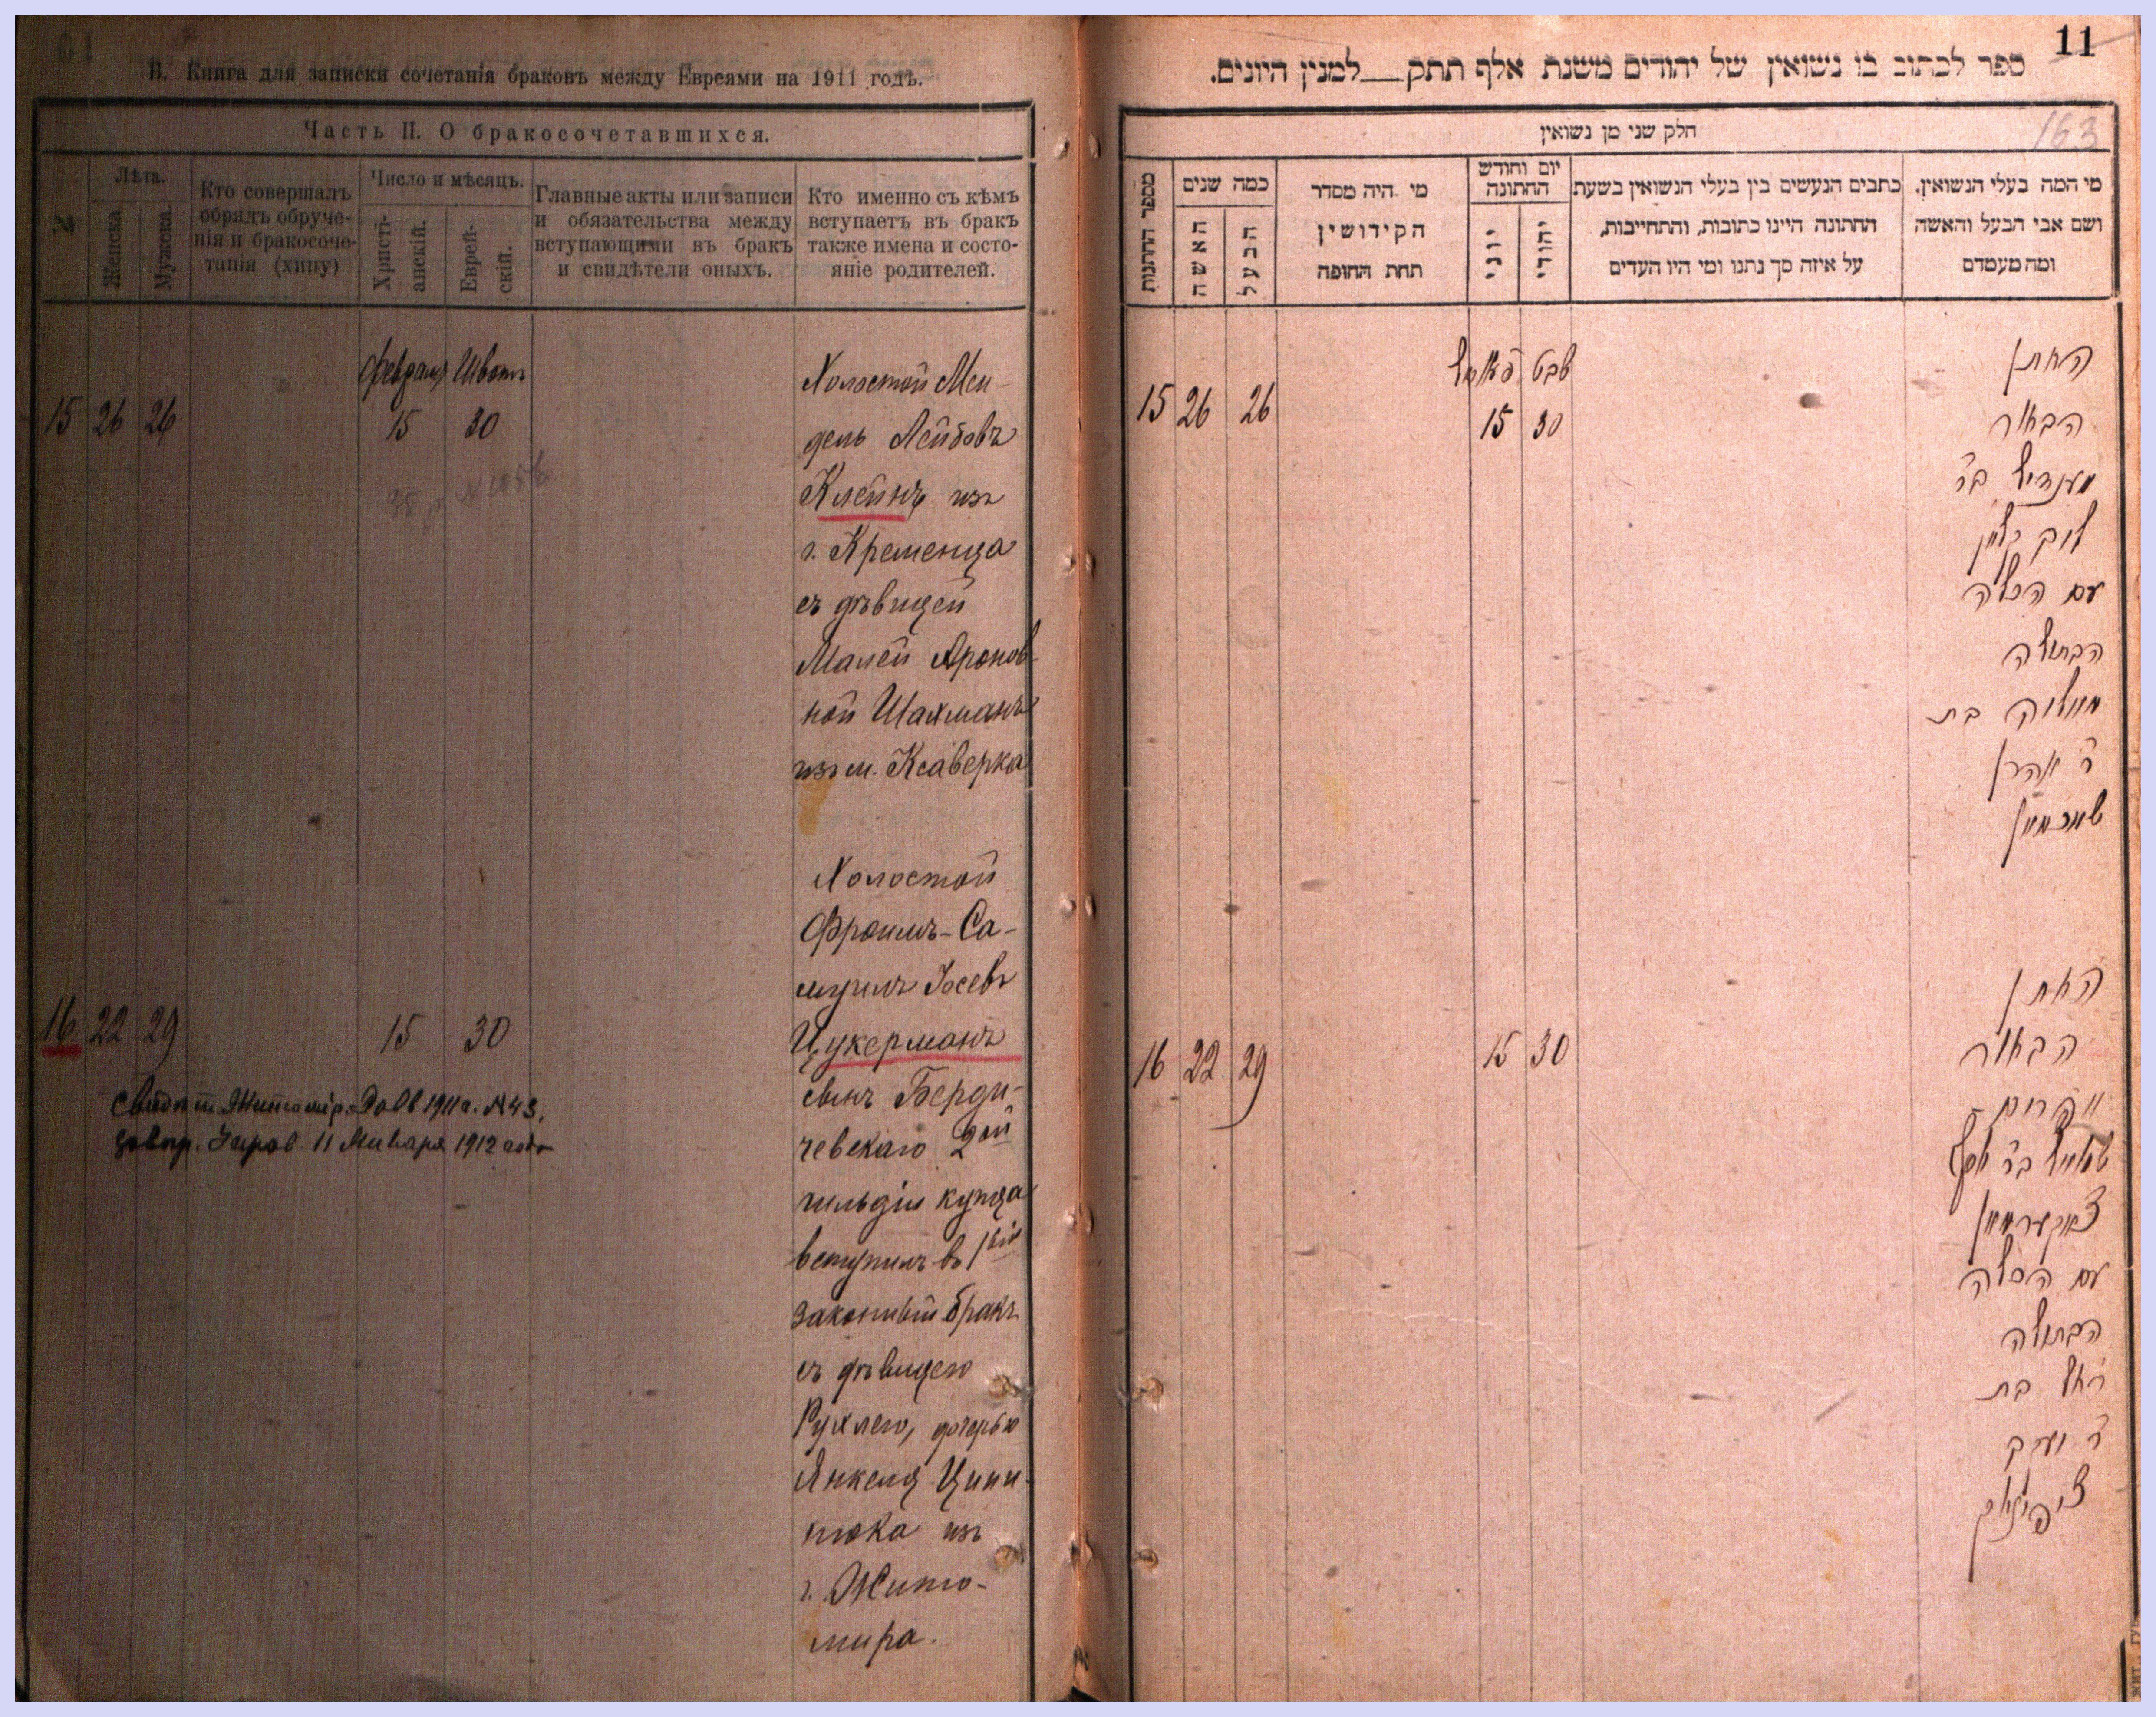 В. Книга для записки сочетанія браковъ между Евреями на 1911 годъ.
Часть II. О бракосочетавшихся.
№
Лѣта.
Женска.
Мужска.
Кто совершалъ
обрядъ обруче-
нія и бракосоче-
танія (хипу)
Число и мѣсяцъ.
Христі-
анскій.
Еврей-
скій.
Главные акты или записи
и обязательства между
вступающими въ бракъ
и свидѣтели оныхъ.
Кто именно съ кѣмъ
вступаетъ въ бракъ
также имена и состо-
яніе родителей.
Февраля Шватъ
15 26 26 15 30
Холостой Мен-
дель Лейбовъ
Клейнъ изъ
г. Кременца
съ дѣвицей
Малей Аронов-
ной Шахманъ
изъ м. Ксаверка
Холостой
Фроимъ-Са-
муилъ Іосевъ
16 22 29 15 30
Цукерманъ
сынъ Берди-
чевскаго 2ой
гильдіи купца
вступилъ въ 1ый
законный бракъ
съ дѣвицею
Рухлею, дочерью
Янкеля Ципи-
нюка изъ
г. Жито-
мира.
1911 г. № 43.
11 Января 1912 года
11
163
ספר לכתוב בו נשואין של יהודים משנת אלף תתק__למנין היונים.
חלק שני מן נשואין
מספר החתנות
כמה שנים
האשה
הבעל
מי היה מסדר
הקידושין
תחת החופה
יום וחודש
החתונה
יוני
יהודי
כתבים הנעשים בין בעלי הנשואין בשעת
החתונה היינו כתובות, והתחייבות,
על איזה סך נתנו ומי היו העדים
מי המה בעלי הנשואין,
ושם אבי הבעל והאשה
ומה מעמדם
שבט
15 26 26 15 30
החתן
הבחור
מענדיל בר
ליב קליין
עם הכלה
הבתולה
מאליה בת
ר אהרן
שאכמאן
החתן
16 22 29 15 30
הבחור
אפרים
שמואל בר יוסף
צוקערמאן
עם הכלה
הבתולה
רחל בת
ר יעקב
ציפיניוק